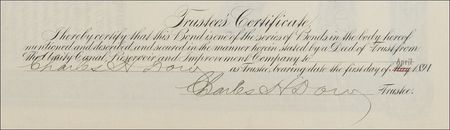 Trustee's Certificate.
I hereby certify that this Bond is one of the series of Bonds in the body hereof
mentioned and described, and secured in the manner herein stated by a Deed of Trust from
The Canal, Reservoir and Improvement Company to
Charles H Dow as Trustee, bearing date the first day of April May 1891
Charles H Dow Trustee.